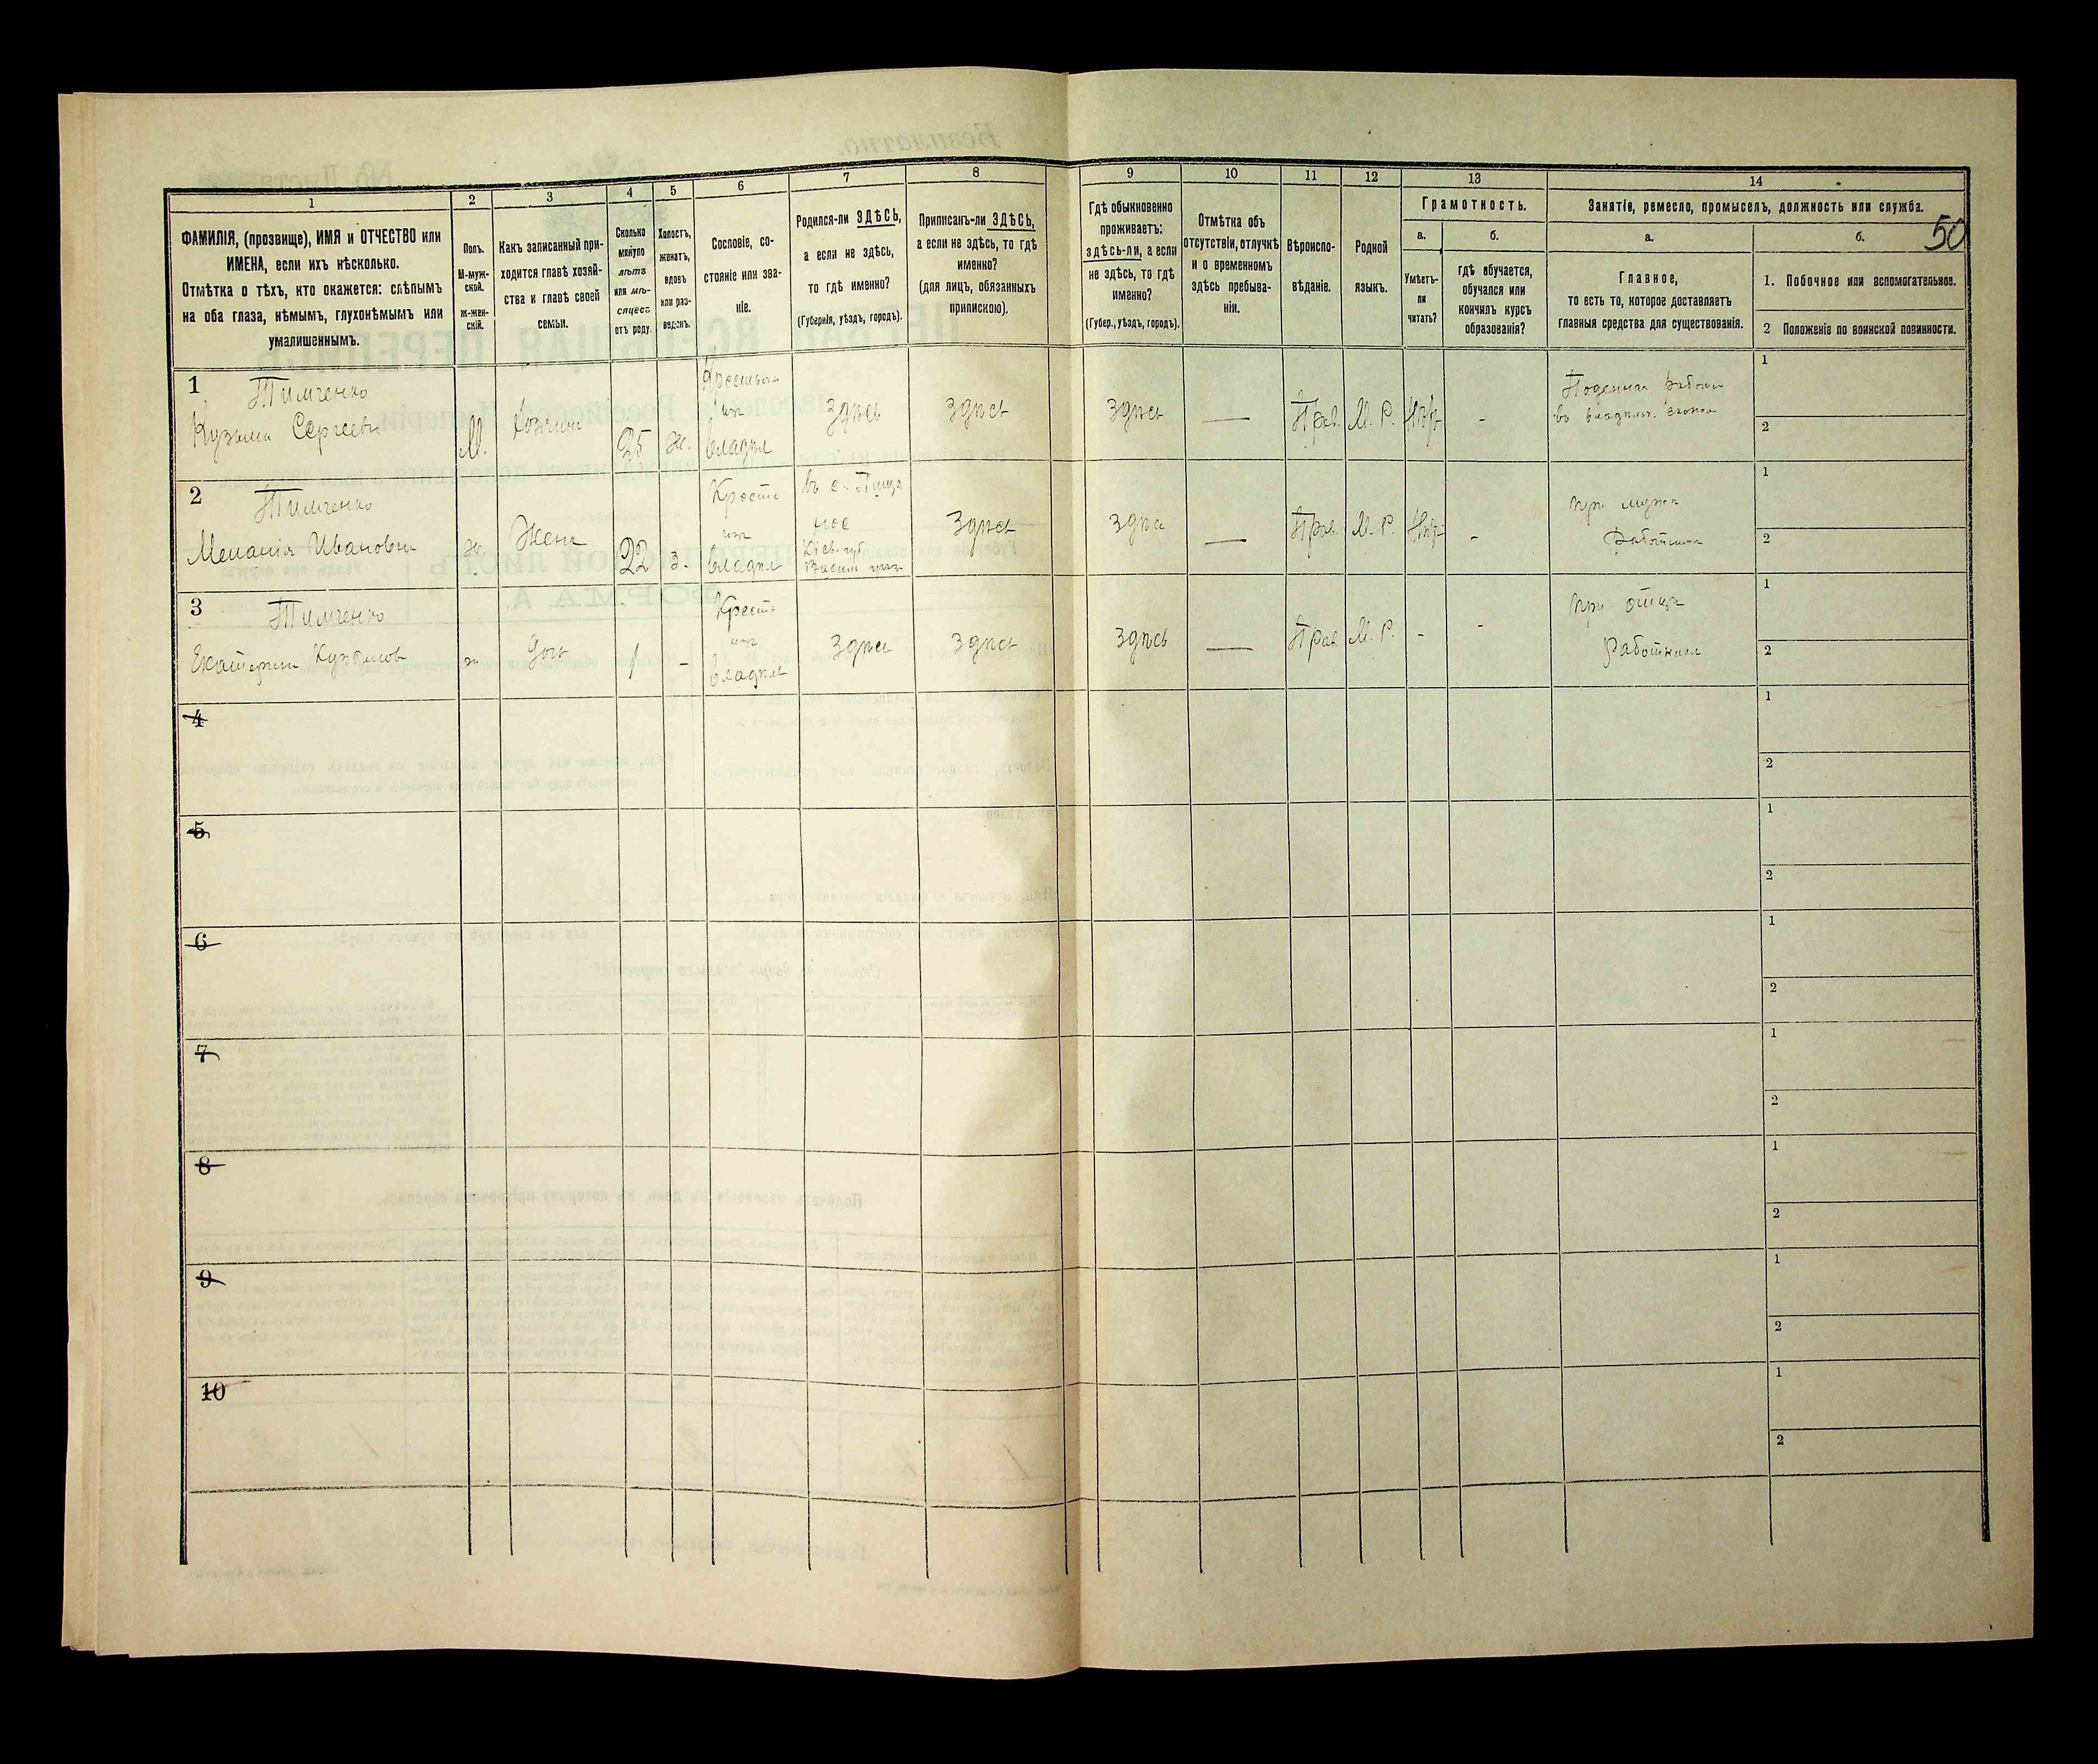 1 2 3 4 5 6 7 8 9 10 11 12 13 14
ФАМИЛІЯ, (прозвище), ИМЯ и ОТЧЕСТВО или
ИМЕНА, если ихъ нѣсколько.
Отмѣтка о тѣхъ, кто окажется: слѣпымъ
на оба глаза, нѣмымъ, глухонѣмымъ или
умалишеннымъ.
Полъ.
М-муж-
ской.
ж-жен-
скій.
Какъ записанный при-
ходится главѣ хозяй-
ства и главѣ своей
семьи.
Сколько
минуло
лѣтъ
или мѣ-
сяцевъ
отъ роду.
Холостъ,
женатъ,
вдовъ
или раз-
веденъ.
Сословіе, со-
стояніе или зва-
ніе.
Родился-ли ЗДѢСЬ,
а если не здѣсь,
то гдѣ именно?
(Губернія, уѣздъ, городъ).
Приписанъ-ли ЗДѢСЬ,
а если не здѣсь, то гдѣ
именно?
(для лицъ, обязанныхъ
припискою).
Гдѣ обыкновенно
проживаетъ:
здѣсь-ли, а если
не здѣсь, то гдѣ
именно?
(Губер., уѣздъ, городъ).
Отмѣтка объ
отсутствіи, отлучкѣ
и о временномъ
здѣсь пребыва-
ніи.
Вѣроиспо-
вѣданіе.
Родной
языкъ.
Грамотность.
а.
Умѣетъ-
ли
читать?
б.
гдѣ обучается,
обучался или
кончилъ курсъ
образованія?
Занятіе, ремесло, промыселъ, должность или служба.
50
а.
Главное,
то есть то, которое доставляетъ
главныя средства для существованія.
б.
1. Побочное или вспомогательное.
2 Положеніе по воинской повинности.
1 Тимченко
Кузьма Сергеевъ
М.
Хозяинъ
25
ж.
изъ
владѣл
Здѣсь
Здѣсь
Здѣсь
—
Прав.
М. Р.
-
1
2
2 Тимченко
Меланія Ивановна
ж.
Жена
22
з.
Крестъ
изъ
владѣл
въ с.
Кіев. губ.
Здѣсь
Здѣсь
—
Прав.
М. Р.
-
при мужѣ
1
2
3 Тимченко
Екатерина Кузьмова
ж
Дочь
1
-
Крестъ
изъ
владѣл
Здѣсь
Здѣсь
Здѣсь
—
Прав
М. Р.
-
-
при отцѣ
1
2
4
1
2
5
1
2
6
1
2
7
1
2
8
1
2
9
1
2
10
1
2